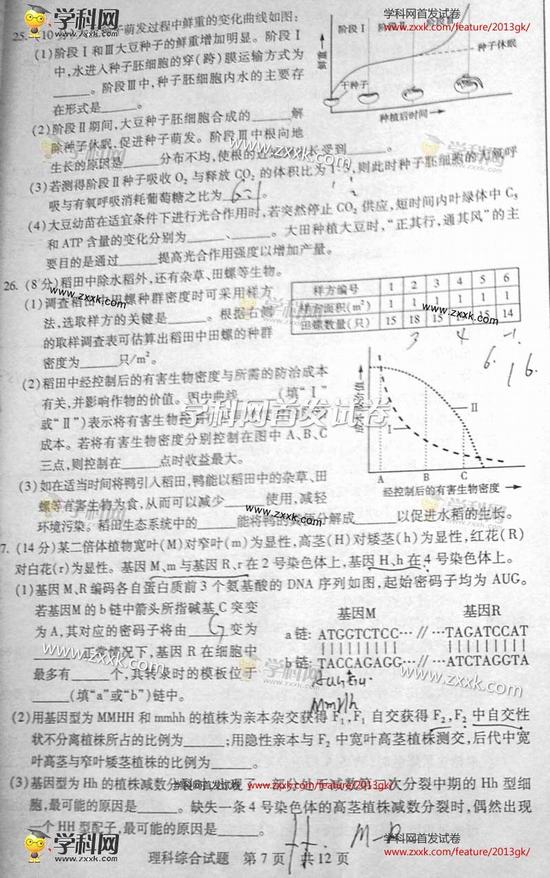 学科网首发试卷
www.zxxk.com/feature/2013gk/
学科网首发试卷
www.zxxk.com/feature/2013gk/
25.(10
萌发过程中鲜重的变化曲线如图:
(1)阶段Ⅰ和Ⅲ大豆种子的鲜重增加明显。阶段Ⅰ
中,水进入种子胚细胞的穿(跨)膜运输方式为
____。阶段Ⅲ中,种子胚细胞内水的主要存
在形式是____。
鲜重
阶段Ⅰ
阶段Ⅱ
阶段Ⅲ
种子休眠
干种子
种植后时间
(2)阶段Ⅱ期间,大豆种子胚细胞合成的____解
除种子休眠,促进种子萌发。阶段Ⅲ中根向地
生长的原因是____分布不均,使根的近地侧生长受到____。
(3)若测得阶段Ⅱ种子吸收O₂与释放CO₂的体积比为1:3,则此时种子胚细胞的无氧呼
吸与有氧呼吸消耗葡萄糖之比为 6:1 。
(4)大豆幼苗在适宜条件下进行光合作用时,若突然停止CO₂供应,短时间内叶绿体中C₅
和ATP含量的变化分别为____、____。大田种植大豆时,“正其行,通其风”的主
要目的是通过____提高光合作用强度以增加产量。
26.(8分)稻田中除水稻外,还有杂草、田螺等生物。
(1)调查稻田中田螺种群密度时可采用样方
法,选取样方的关键是____。根据右侧
的取样调查表可估算出稻田中田螺的种群
密度为____只/m²。
样方编号 1 2 3 4 5 6
样方面积(m²) 1 1 1 1 1 1
田螺数量(只) 15 18 15 19 15 14
(2)稻田中经控制后的有害生物密度与所需的防治成本
有关,并影响作物的价值。图中曲线____(填“Ⅰ”
或“Ⅱ”)表示将有害生物
成本。若将有害生物密度分别控制在图中A、B、C
三点,则控制在____点时收益最大。
Ⅰ
Ⅱ
A B C
经控制后的有害生物密度
(3)如在适当时间将鸭引入稻田,鸭能以稻田中的杂草、田
螺等有害生物为食,从而可以减少____使用,减轻
环境污染。稻田生态系统中的____能将鸭的粪便分解成____以促进水稻的生长。
7.(14分)某二倍体植物宽叶(M)对窄叶(m)为显性,高茎(H)对矮茎(h)为显性,红花(R)
对白花(r)为显性。基因M、m与基因R、r在2号染色体上,基因H、h在4号染色体上。
(1)基因M、R编码各自蛋白质前3个氨基酸的DNA序列如图,起始密码子均为AUG。
若基因M的b链中箭头所指碱基C突变
为A,其对应的密码子将由____变为
____。正常情况下,基因R在细胞中
最多有____个,其转录时的模板位于
____(填“a”或“b”)链中。
基因M 基因R
a链:ATGGTCTCC… // …TAGATCCAT
b链:TACCAGAGG… // …ATCTAGGTA
MmHh
(2)用基因型为MMHH和mmhh的植株为亲本杂交获得F₁,F₁自交获得F₂,F₂中自交性
状不分离植株所占的比例为____;用隐性亲本与F₂中宽叶高茎植株测交,后代中宽
叶高茎与窄叶矮茎植株的比例为____。
(3)基因型为Hh的植株减数分裂时,出现了一部分处于减数第二次分裂中期的Hh型细
胞,最可能的原因是____。缺失一条4号染色体的高茎植株减数分裂时,偶然出现
一个HH型配子,最可能的原因是____。
理科综合试题 第7页 共12页
学科网首发试卷
www.zxxk.com/feature/2013gk/